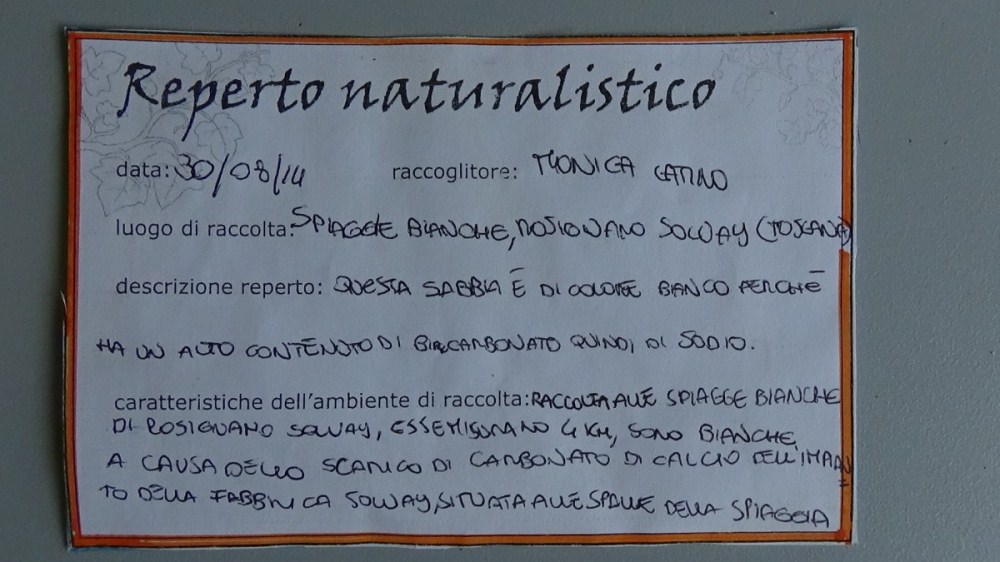 Reperto naturalistico
data: 30/08/14 raccoglitore: MONICA CATINO
luogo di raccolta: SPIAGGE BIANCHE, ROSIGNANO SOLVAY (TOSCANA)
descrizione reperto: QUESTA SABBIA È DI COLORE BIANCO PERCHÈ
HA UN ALTO CONTENUTO DI BICARBONATO QUINDI DI SODIO.
caratteristiche dell'ambiente di raccolta: RACCOLTA ALLE SPIAGGE BIANCHE
DI ROSIGNANO SOLVAY, ESSE MISURANO 4 KM, SONO BIANCHE
A CAUSA DELLO SCARICO DI CARBONATO DI CALCIO DELL'IMPIAN=
TO DELLA FABBRICA SOLVAY, SITUATA ALLE SPALLE DELLA SPIAGGIA